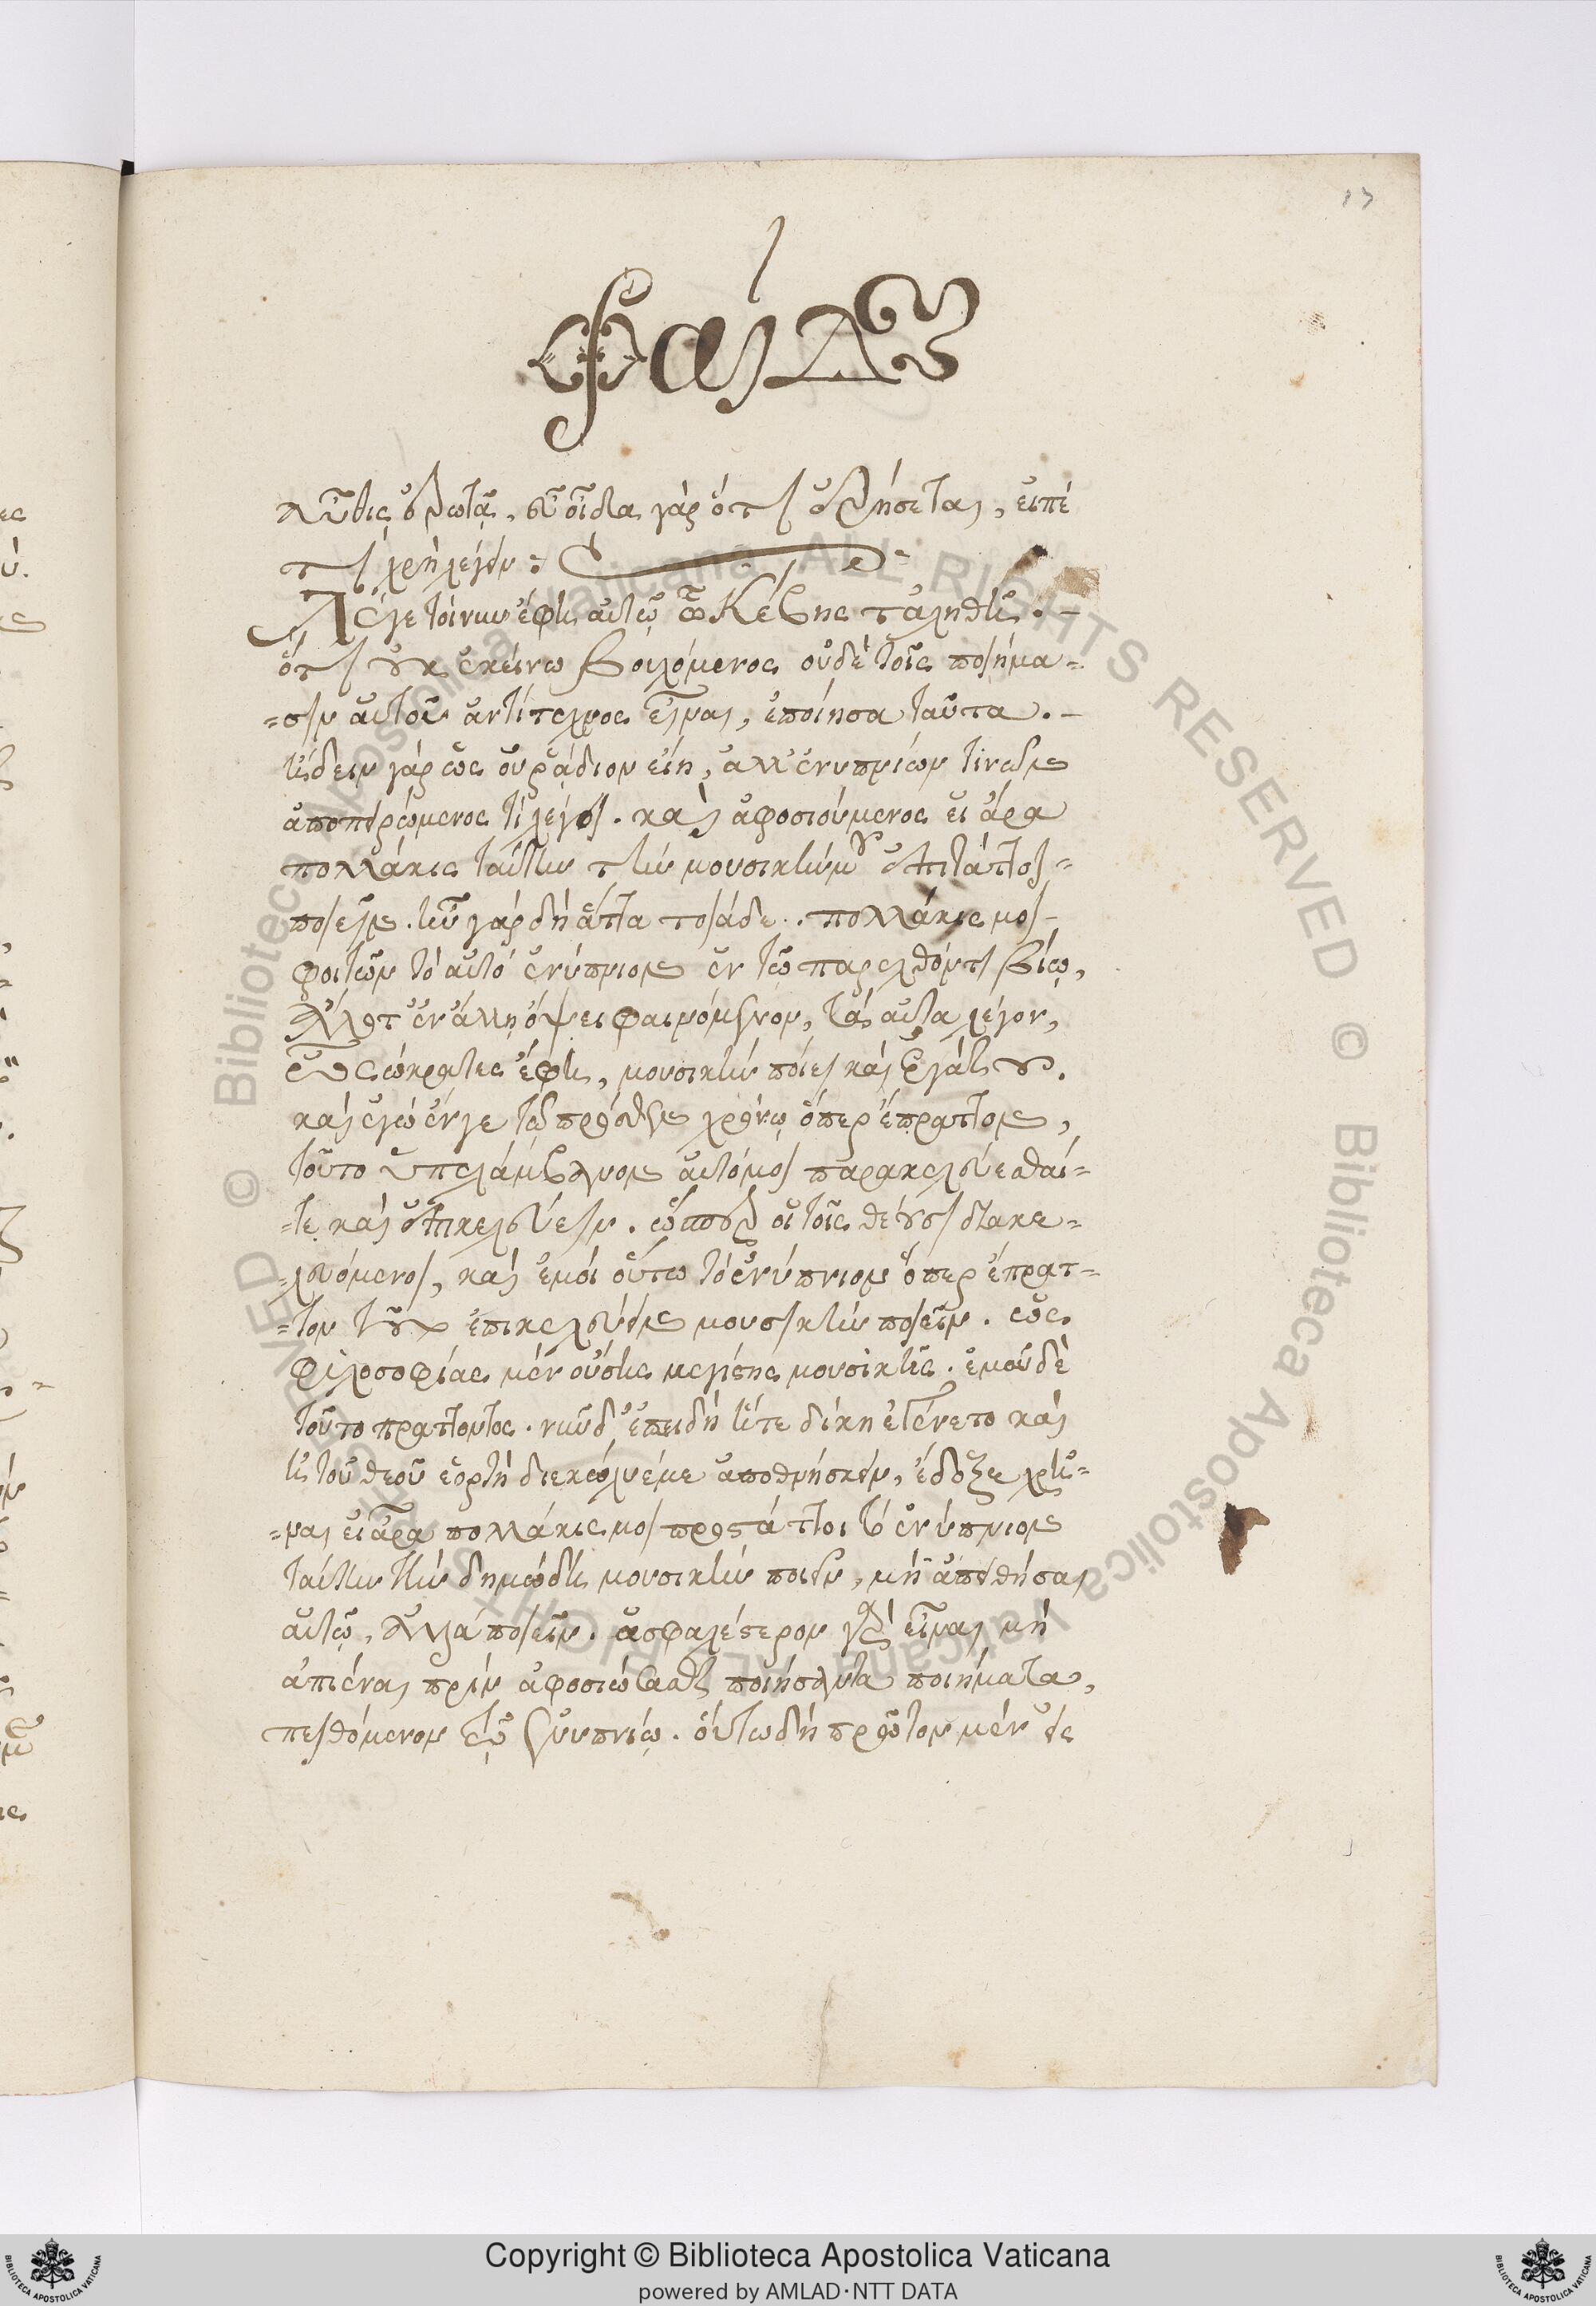 13
Φαίδων
αὖθις ἐρωτᾷ, εὖ οἶδα γὰρ ὅτι ἐρήσεται, εἰπὲ
τί χρὴ λέγειν :
Λέγε τοίνυν ἔφη αὐτῷ ὦ Κέβης τἀληθῆ. –
ὅτι οὐκ ἐκείνω βουλόμενος οὐδὲ τοῖς ποιήμα=
=σιν αὐτοῦ ἀντίτεχνος εἶναι, ἐποίησα ταῦτα. –
ᾔδειν γὰρ ὡς οὐ ῥάδιον εἴη, ἀλλ' ἐνυπνίων τινῶν
ἀποπειρώμενος τί λέγοι. καὶ ἀφοσιούμενος εἰ ἄρα
πολλάκις ταύτην τὴν μουσικήν μοι ἐπιτάττοι=
ποιεῖν. ἦν γὰρ δὴ ἄττα τοιάδε. πολλάκις μοι
φοιτῶν τὸ αὐτὸ ἐνύπνιον ἐν τῷ παρελθόντι βίῳ,
ἄλλοτ' ἐν ἄλλῃ ὄψει φαινόμενον, τὰ αὐτὰ λέγον,
ὦ Σώκρατες ἔφη, μουσικὴν ποίει καὶ ἐργάζου.
καὶ ἐγὼ ἔν γε τῷ πρόσθεν χρόνῳ ὅπερ ἔπραττον,
τοῦτο ὑπελάμβανον αὐτό μοι παρακελεύεσθαί=
=τε καὶ ἐπικελεύειν. ὥσπερ οἱ τοῖς θέουσι διακε=
=λευόμενοι, καὶ ἐμοὶ οὕτω τὸ ἐνύπνιον ὅπερ ἔπρατ=
=τον τοῦτο ἐπικελεύειν μουσικὴν ποιεῖν. ὡς
φιλοσοφίας μὲν οὔσης μεγίστης μουσικῆς. ἐμοῦ δὲ
τοῦτο πράττοντος. νῦν δ' ἐπειδὴ ἥτε δίκη ἐγένετο καὶ
ἡ τοῦ θεοῦ ἑορτὴ διεκώλυέ με ἀποθνήσκειν, ἔδοξε χρῆ=
=ναι εἰ ἄρα πολλάκις μοι προστάττοι τὸ ἐνύπνιον
ταύτην τὴν δημώδη μουσικὴν ποιεῖν, μὴ ἀπειθῆσαι
αὐτῷ, ἀλλὰ ποιεῖν. ἀσφαλέστερον γὰρ εἶναι μὴ
ἀπιέναι πρὶν ἀφοσιώσασθαι ποιήσαντα ποιήματα,
πειθόμενον τῷ ἐνυπνίῳ. οὕτω δὴ πρῶτον μὲν εἰς
Copyright © Biblioteca Apostolica Vaticana
powered by AMLAD·NTT DATA